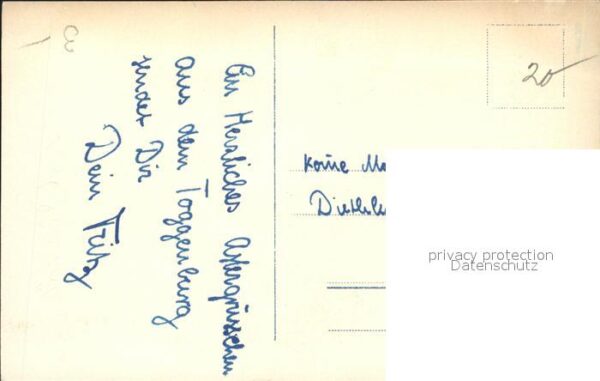 Ein Herzliches Ostergrüsschen
aus dem Toggenburg
sendet Dir
Dein Fritz
20
privacy protection
Datenschutz